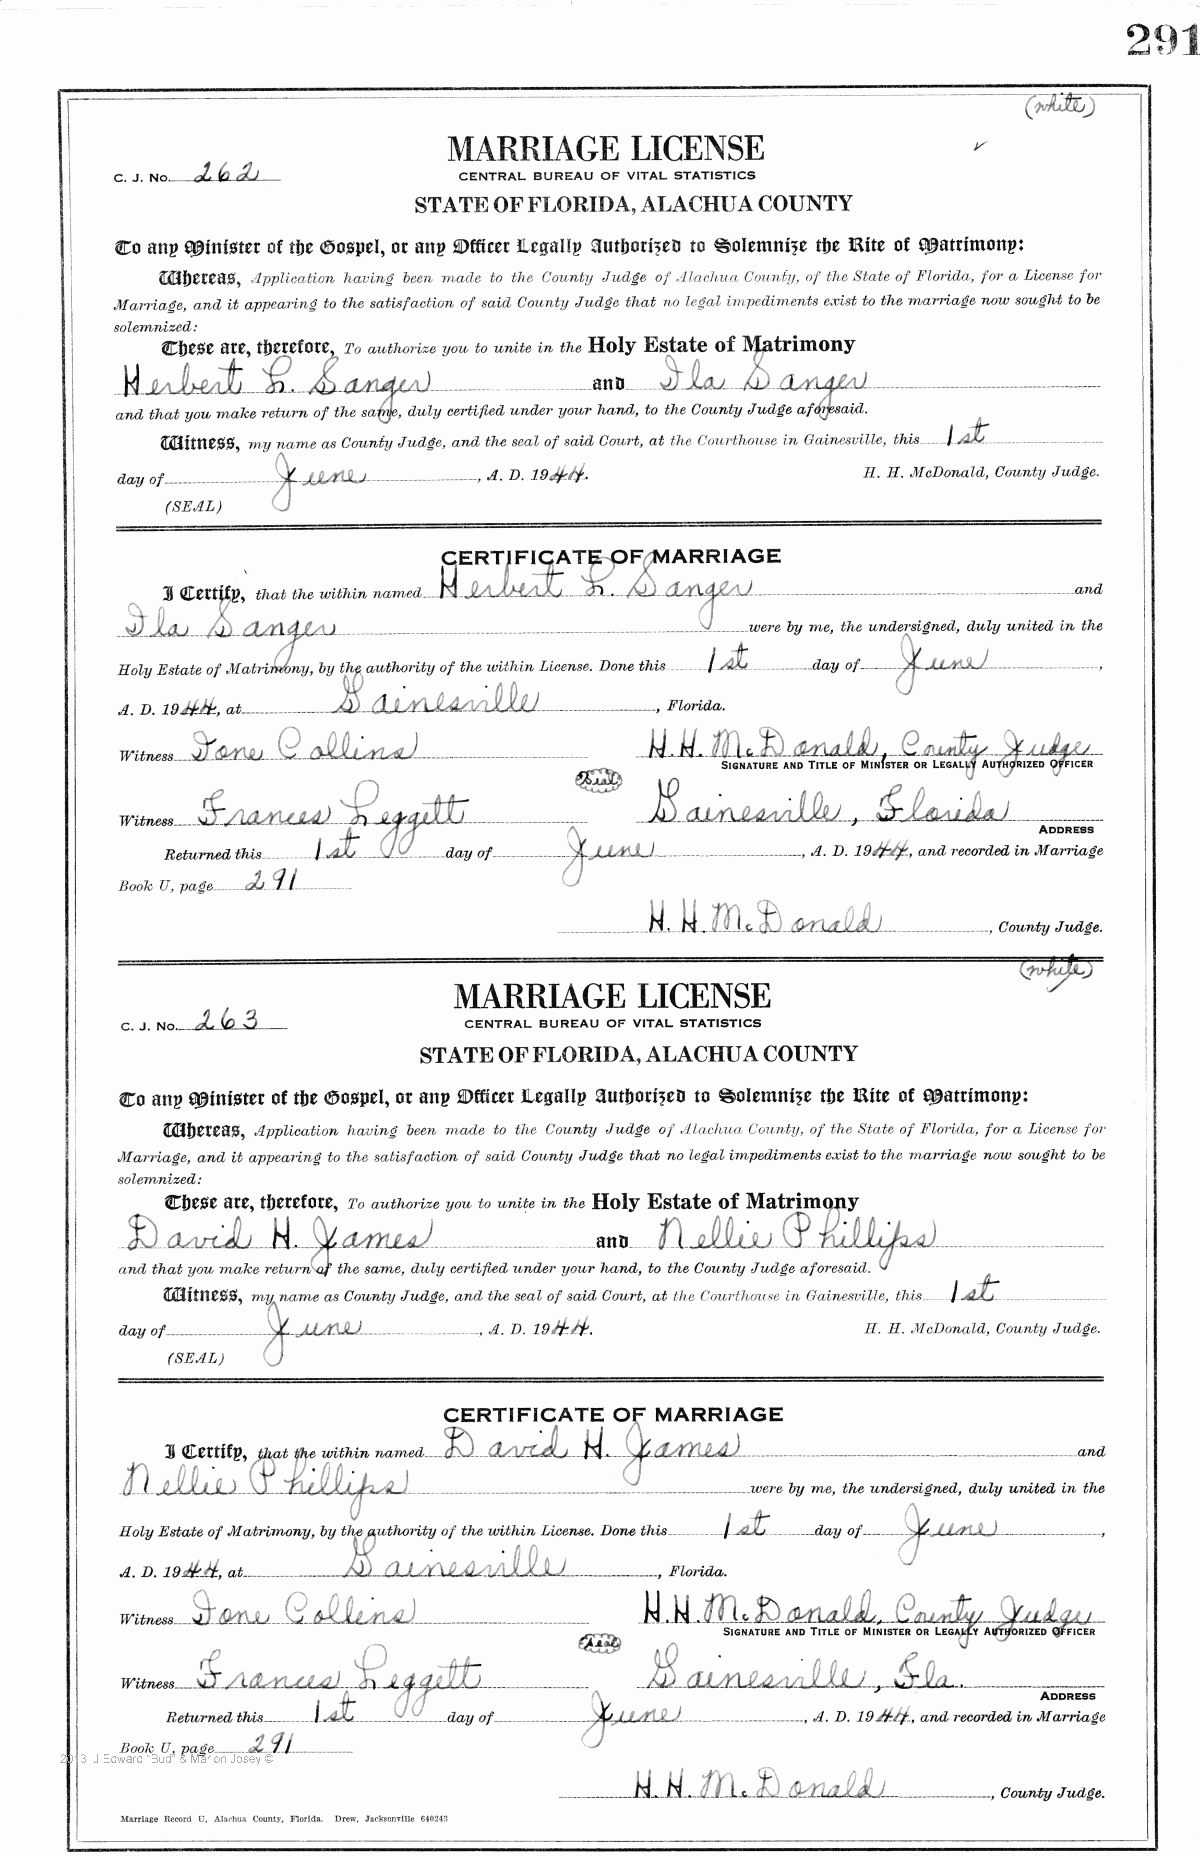 291
(white)
MARRIAGE LICENSE
C. J. No. 262
CENTRAL BUREAU OF VITAL STATISTICS
STATE OF FLORIDA, ALACHUA COUNTY
To any Minister of the Gospel, or any Officer Legally Authorized to Solemnize the Rite of Matrimony:
Whereas, Application having been made to the County Judge of Alachua County, of the State of Florida, for a License for
Marriage, and it appearing to the satisfaction of said County Judge that no legal impediments exist to the marriage now sought to be
solemnized:
These are, therefore, To authorize you to unite in the Holy Estate of Matrimony
Herbert L. Sanger and Ila Sanger
and that you make return of the same, duly certified under your hand, to the County Judge aforesaid.
Witness, my name as County Judge, and the seal of said Court, at the Courthouse in Gainesville, this 1st
day of June, A. D. 1944. H. H. McDonald, County Judge.
(SEAL)
CERTIFICATE OF MARRIAGE
I Certify, that the within named Herbert L. Sanger and
Ila Sanger were by me, the undersigned, duly united in the
Holy Estate of Matrimony, by the authority of the within License. Done this 1st day of June,
A. D. 1944, at Gainesville, Florida.
Witness Ione Collins H. H. McDonald, County Judge
SIGNATURE AND TITLE OF MINISTER OR LEGALLY AUTHORIZED OFFICER
Seal
Witness Frances Leggett Gainesville, Florida
ADDRESS
Returned this 1st day of June, A. D. 1944, and recorded in Marriage
Book U, page 291
H. H. McDonald, County Judge.
(white)
MARRIAGE LICENSE
C. J. No. 263
CENTRAL BUREAU OF VITAL STATISTICS
STATE OF FLORIDA, ALACHUA COUNTY
To any Minister of the Gospel, or any Officer Legally Authorized to Solemnize the Rite of Matrimony:
Whereas, Application having been made to the County Judge of Alachua County, of the State of Florida, for a License for
Marriage, and it appearing to the satisfaction of said County Judge that no legal impediments exist to the marriage now sought to be
solemnized:
These are, therefore, To authorize you to unite in the Holy Estate of Matrimony
David H. James and Nellie Phillips
and that you make return of the same, duly certified under your hand, to the County Judge aforesaid.
Witness, my name as County Judge, and the seal of said Court, at the Courthouse in Gainesville, this 1st
day of June, A. D. 1944. H. H. McDonald, County Judge.
(SEAL)
CERTIFICATE OF MARRIAGE
I Certify, that the within named David H. James and
Nellie Phillips were by me, the undersigned, duly united in the
Holy Estate of Matrimony, by the authority of the within License. Done this 1st day of June,
A. D. 1944, at Gainesville, Florida.
Witness Ione Collins H. H. McDonald, County Judge
SIGNATURE AND TITLE OF MINISTER OR LEGALLY AUTHORIZED OFFICER
Seal
Witness Frances Leggett Gainesville, Fla.
ADDRESS
Returned this 1st day of June, A. D. 1944, and recorded in Marriage
Book U, page 291
2013 J Edward "Bud" & Marion Josey ©
H. H. McDonald, County Judge.
Marriage Record U, Alachua County, Florida. Drew, Jacksonville 640243